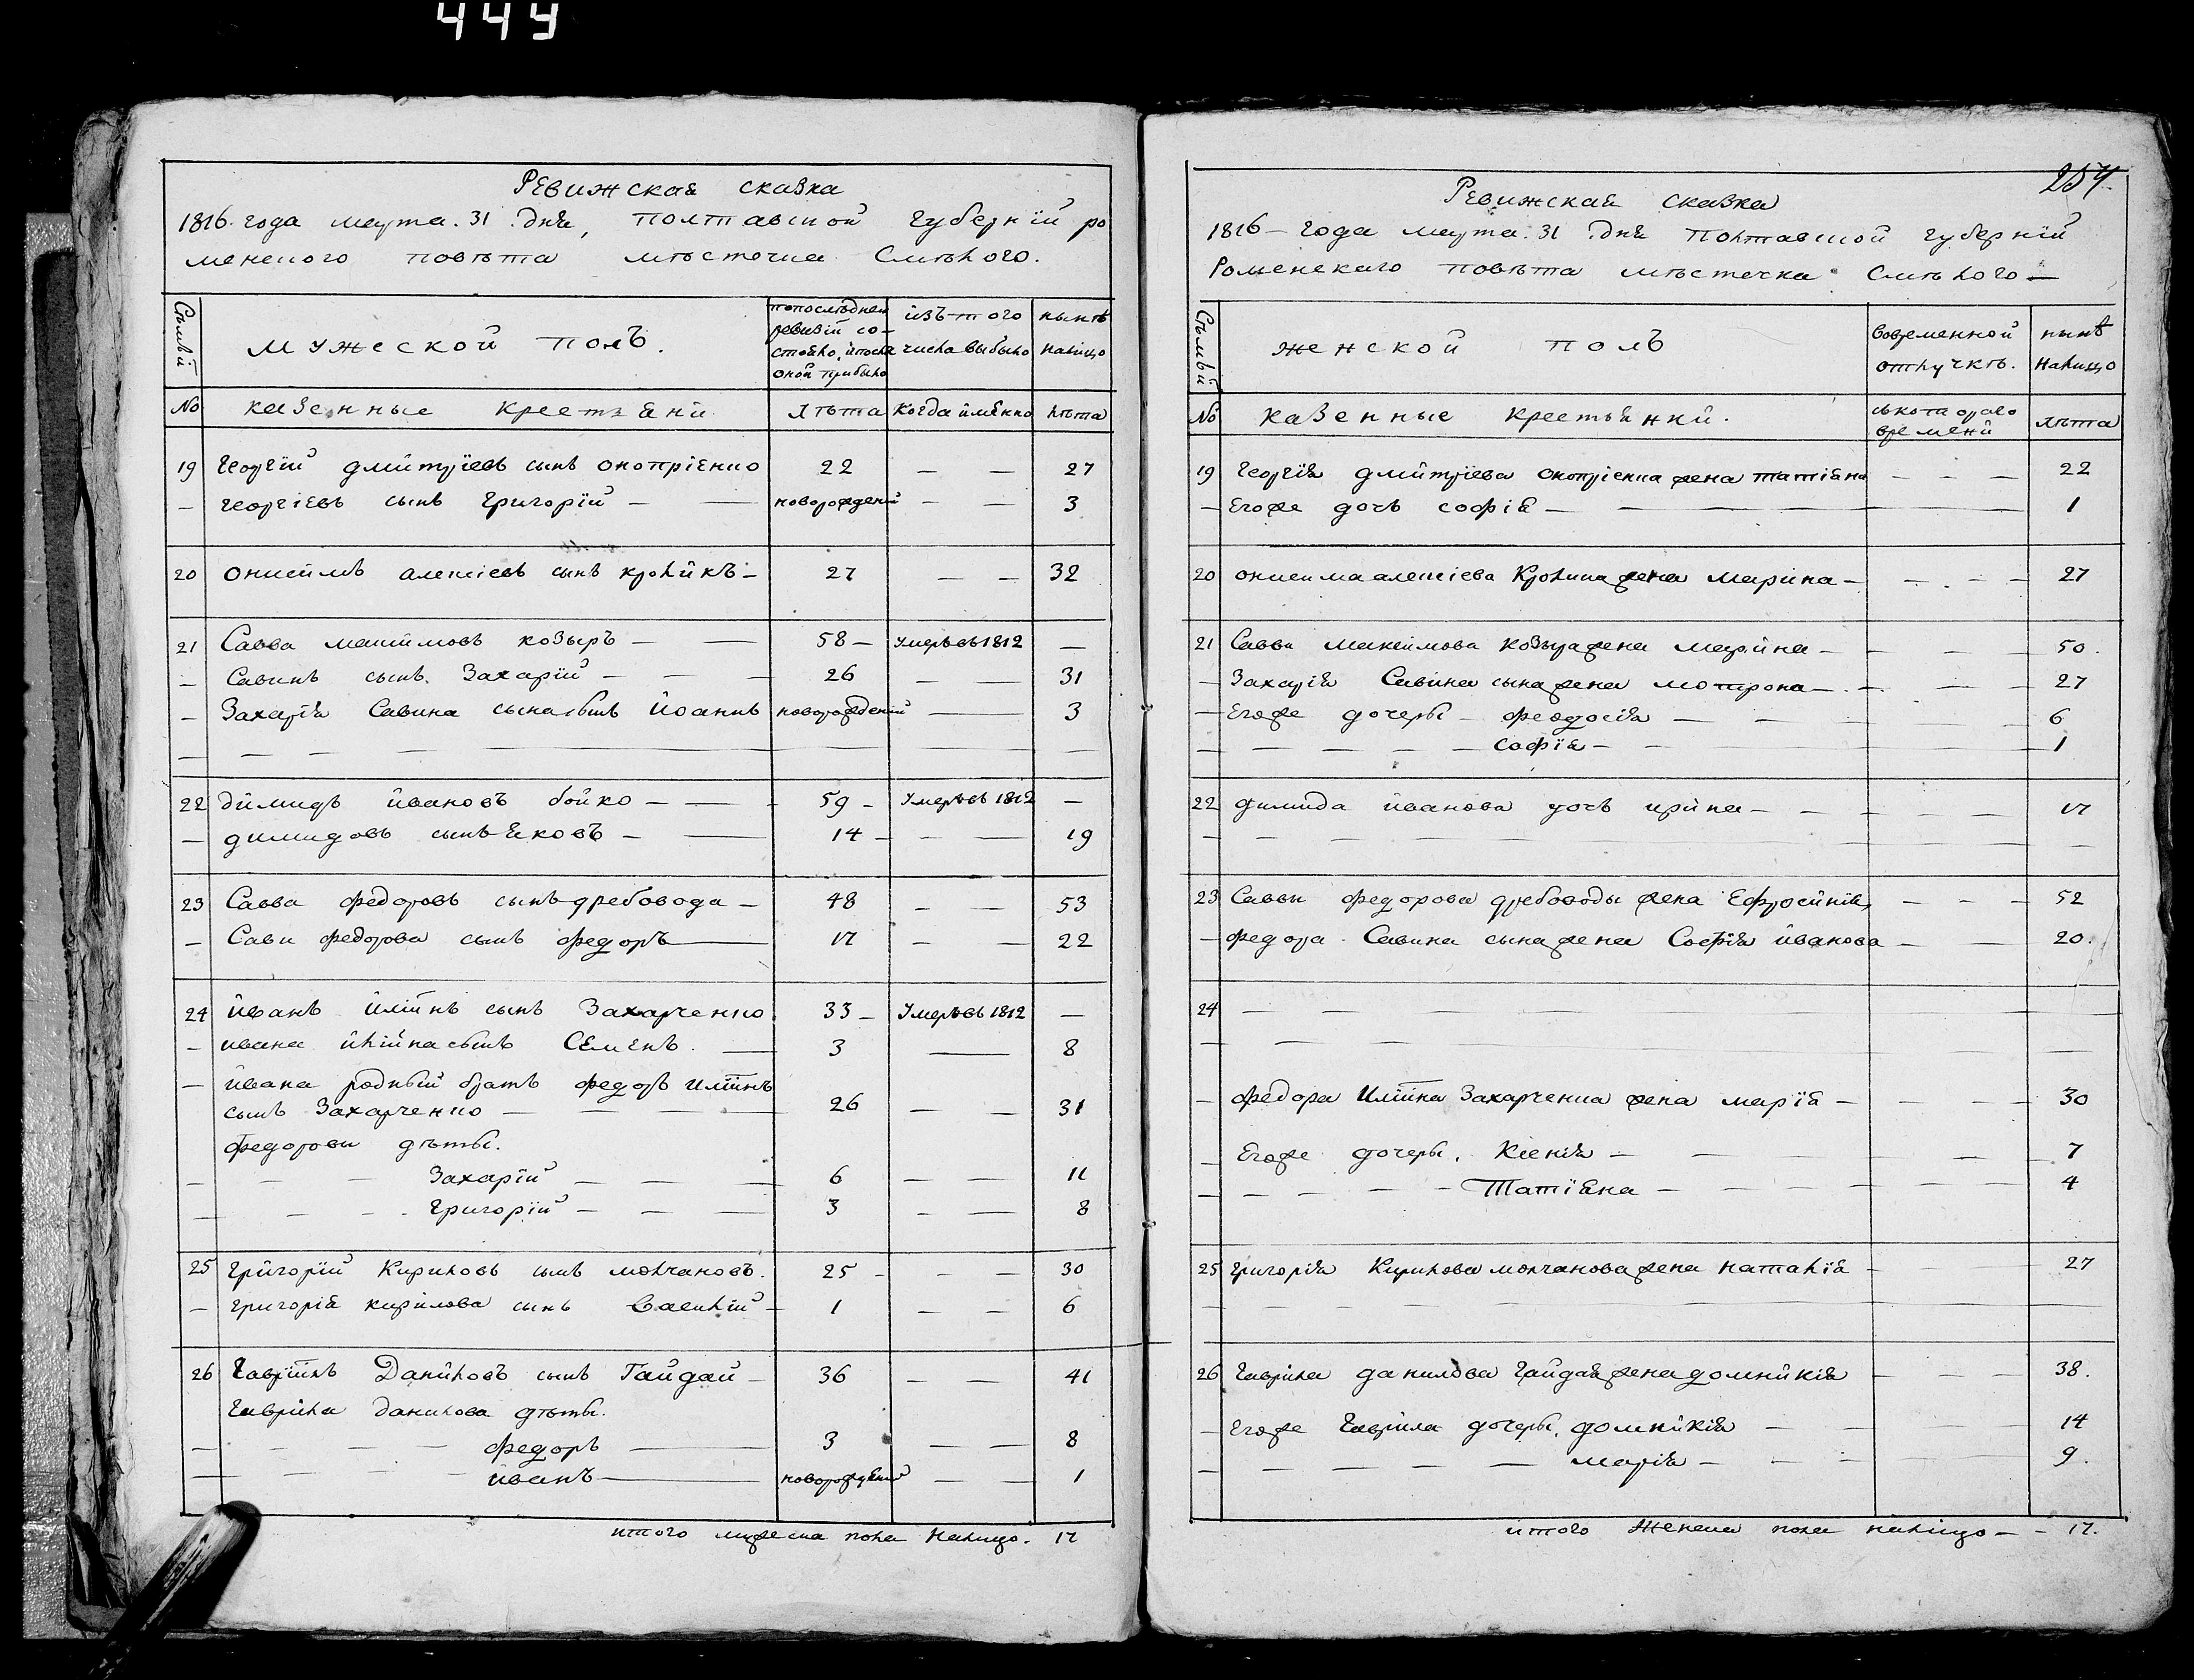 449
Ревижская сказка
1816. года марта. 31 дня, полтавской губернїй ро
менского повѣта мѣсточка Смѣлого.
Сѣмьи
мужеской полъ.
попослѣдней ревизїй со- стояло, ипосле оной прибыло
изъ того числа выбыло
нынѣ налицо
№ казенные крестьяни лѣта когда имянно лѣта
19 Георгїй дмитрїевъ сынъ оноприенко 22 — — 27
— георгіевъ сынъ Григорїй — — новорожденїй — — 3
20 Онисимъ алексіевъ сынъ кроликъ — 27 — — 32
21 Савва максимовъ козыръ — — 58 — Умеръ въ 1812 —
— Савинъ сынъ. Захарїй — — — 26 — — 31
— Захарїя Савина сына сынъ йоаннъ новорожденїй — 3
— — — — — — — —
22 димидъ ивановъ бойко — — — 59 — Умеръ въ 1812 —
— димидовъ сынъ яковъ — — 14 — — — 19
23 Савва федоровъ сынъ дребовода — 48 — — 53
— Сави федорова сынъ федоръ — 17 — — 22
24 иванъ илїинъ сынъ Захарченко 33 — Умеръ въ 1812 —
— ивана илїина сынъ Семенъ. — 3 — 8
— ивана родный братъ федоръ илїинъ
сынъ Захарченко — — — — 26 — — 31
федорови дѣты.
— — — Захарїй — — — 6 — — 11
— — — Григорїй — — — 3 — — 8
25 григорїй Кириловъ сынъ молчановъ. 25 — — — 30
— григорїя кирилова сынъ Василїй — 1 — — 6
26 Гаврїилъ Даниловъ сынъ Гайдай — 36 — — 41
Гаврила данилова дѣты.
— — — — федоръ — 3 — — 8
— — — — иванъ — новорожденїй — — 1
итого мужеска пола налицо. 17
254
Ревижская сказка
1816 — года марта. 31 дня полтавской губернїй
Роменскаго повѣта мѣстечка Смѣлого —
Сѣмьи
женской полъ
вовременной отлучкѣ.
нынѣ налицо
№ казенные крестьянки. съкотораго времени лѣта
19 Георгїя дмитрїева оноприенка жена татіяна — — — 22
— Егоже дочъ софія — — — — 1
20 онисима алексіева Кролика жена марина — — — — 27
21 Савви максимова козыра жена марина — — — — 50.
— Захарїя Савина сына жена мотрона — — — — 27
— Егоже дочеры — феодосія — — — 6
— — — — — — софїя — — — 1
22 димида иванова дочъ ирина — — — — — — 17
— — — — — — — — — —
23 Саввы федорова дребоводы жена Ефросинія, — — — 52
— федора. Савина сына жена Софїя иванова — — 20.
24 — — — — — — — — —
— — — — — — —
— федора илїина Захарченка жена марїя — — — — 30
— Егоже дочеры. Ксенія — — — — — 7
— — — — — — Татїяна — — — — — — 4
25 григорія Кирилова молчанова жена наталїя — — — 27
— — — — — — — —
26 Гаврила данилова гайдая жена домникія — — — 38.
— Егоже Гаврила дочеры, домникія — — — — 14
— — — — — — марія — — — — — 9.
итого Женска пола налицо — — 17.